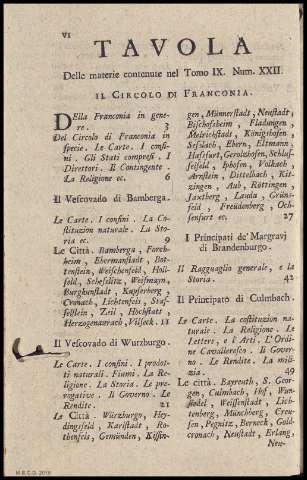 VI
TAVOLA
Delle materie contenute nel Tomo IX. Num. XXII.
IL CIRCOLO DI FRANCONIA.
DElla Franconia in gene-
re. 3
Del Circolo di Franconia in
specie. Le Carte. I confi-
ni. Gli Stati compresi. I
Direttori. Il Contingente.
La Religione ec. 6
Il Vescovado di Bamberga.
Le Carte. I confini. La Co-
stituzion naturale. La Sto-
ria ec. 9
Le Città. Bamberga, Forch-
heim, Ebermanstadt, Bot-
tenstein, Weischenfeld, Holl-
feld, Schesslitz, Weismayn,
Burgkunstadt, Kupferberg,
Cronach, Lichtenfels, Staf-
felstein, Zeil, Höchstatt,
Herzogenaurach, Vilseck. 11
Il Vescovado di Wurzburgo.
Le Carte. I confini. I prodot-
ti naturali. Fiumi. La Re-
ligione. La Storia. Le pre-
rogative. Il Governo. Le
Rendite. 21
La Città. Würzburgo, Hey-
dingsfeld, Karlstadt, Ro-
thenfels, Gemünden, Kissin-
gen, Münnerstadt, Neustadt,
Bischofsheim, Fladungen,
Melrichstadt, Königshofen,
Sesslach, Ebern, Eltmann,
Hassfurt, Gerolzhofen, Schlus-
selfeld, Iphofen, Volkach,
Arnstein, Dittelbach, Kit-
zingen, Aub, Röttingen,
Jaxtberg, Lauda, Grüns-
feld, Freudenberg, Och-
senfurt ec. 27
I Principati de' Margravj
di Brandenburgo.
Il Ragguaglio generale, e la
Storia. 42
Il Principato di Culmbach.
Le Carte. La costituzion na-
turale. La Religione. Le
Lettere, e l'Arti. L'Ordi-
ne Cavalleresco. Il Gover-
no. Le Rendite. La mili-
zia. 49
Le città. Bayreuth, S. Geor-
gen, Culmbach, Hof, Wun-
siedel, Weissenstadt, Lich-
tenberg, Münchberg, Creu-
sen, Pegnitz, Berneck, Gold-
cronach, Neustadt, Erlang
Neu-
M.B.C.D. 2019